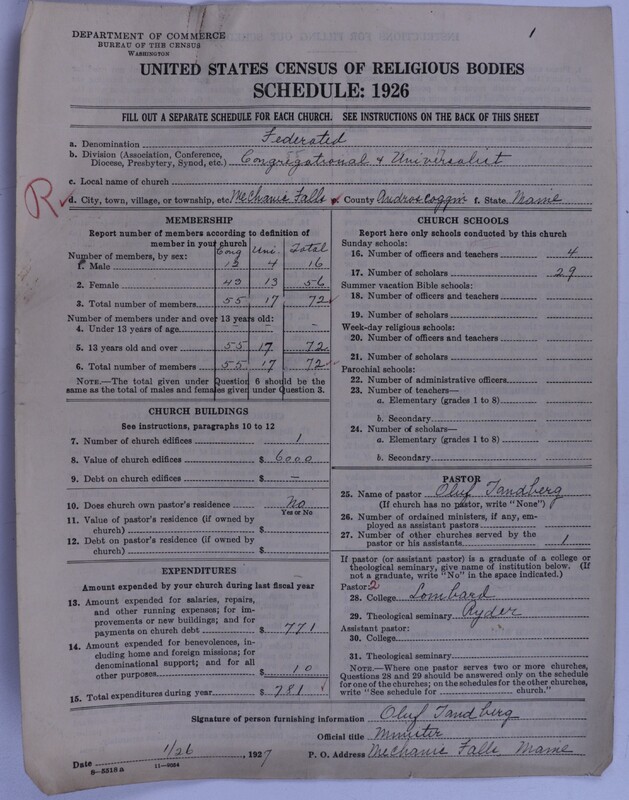 1
DEPARTMENT OF COMMERCE
BUREAU OF THE CENSUS
WASHINGTON
UNITED STATES CENSUS OF RELIGIOUS BODIES
SCHEDULE: 1926
FILL OUT A SEPARATE SCHEDULE FOR EACH CHURCH. SEE INSTRUCTIONS ON THE BACK OF THIS SHEET
a. Denomination Federated
b. Division (Association, Conference,
Diocese, Presbytery, Synod, etc.) Congregational & Universalist
c. Local name of church
R d. City, town, village, or township, etc. Mechanic Falls e. County Androscoggin f. State Maine
MEMBERSHIP
Report number of members according to definition of
member in your church
Number of members, by sex: Cong Uni. Total
1. Male 12 4 16
2. Female 43 13 56
3. Total number of members 55 17 72
Number of members under and over 13 years old:
4. Under 13 years of age - - -
5. 13 years old and over 55 17 72
6. Total number of members 55 17 72
NOTE.—The total given under Question 6 should be the
same as the total of males and females given under Question 3.
CHURCH BUILDINGS
See instructions, paragraphs 10 to 12
7. Number of church edifices 1
8. Value of church edifices $ 6000
9. Debt on church edifices $ —
10. Does church own pastor's residence No
Yes or No
11. Value of pastor's residence (if owned by
church) $
12. Debt on pastor's residence (if owned by
church) $
EXPENDITURES
Amount expended by your church during last fiscal year
13. Amount expended for salaries, repairs,
and other running expenses; for im-
provements or new buildings; and for
payments on church debt $ 771
14. Amount expended for benevolences, in-
cluding home and foreign missions; for
denominational support; and for all
other purposes $ 10
15. Total expenditures during year $ 781
CHURCH SCHOOLS
Report here only schools conducted by this church
Sunday schools:
16. Number of officers and teachers 4
17. Number of scholars 29
Summer vacation Bible schools:
18. Number of officers and teachers
19. Number of scholars
Week-day religious schools:
20. Number of officers and teachers
21. Number of scholars
Parochial schools:
22. Number of administrative officers
23. Number of teachers—
a. Elementary (grades 1 to 8)
b. Secondary
24. Number of scholars—
a. Elementary (grades 1 to 8)
b. Secondary
PASTOR
25. Name of pastor Oluf Tandberg
(If church has no pastor, write "None")
26. Number of ordained ministers, if any, em-
ployed as assistant pastors
27. Number of other churches served by the
pastor or his assistants 1
If pastor (or assistant pastor) is a graduate of a college or
theological seminary, give name of institution below. (If
not a graduate, write "No" in the space indicated.)
Pastor: 2
28. College Lombard
29. Theological seminary Ryder
Assistant pastor:
30. College
31. Theological seminary
NOTE.—Where one pastor serves two or more churches,
Questions 28 and 29 should be answered only on the schedule
for one of the churches; on the schedules for the other churches,
write "See schedule for church."
Signature of person furnishing information Oluf Tandberg
Official title Minister
Date 1/26, 1927 P. O. Address Mechanic Falls, Maine
8—5518a 11—9084